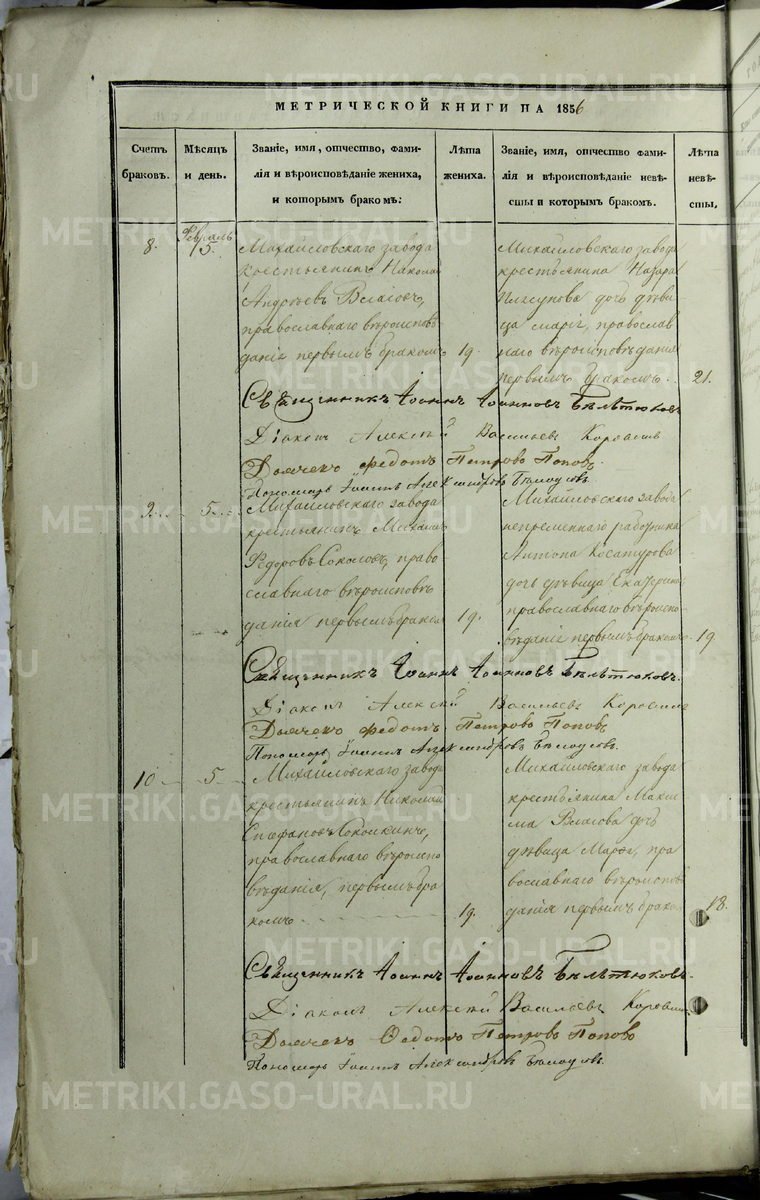 МЕТРИЧЕСКОЙ КНИГИ НА 1856
Счетъ браковъ.
Мѣсяцъ и день.
Званіе, имя, отчество, фамилія и вѣроисповѣданіе жениха, и которымъ бракомъ:
Лѣта жениха.
Званіе, имя, отчество фамилія и вѣроисповѣданіе невѣсты и которымъ бракомъ.
Лѣта невѣсты,
8.
Февраль
15.
Михайловскаго завода
крестьянинъ Николай
Андреевъ Власовъ,
православнаго вѣроисповѣ
данія первымъ бракомъ
19.
Михайловскаго завода
крестьянина Назара
дочь дѣви
ца Марія, православ
наго вѣроисповѣданія
первымъ бракомъ.
21.
Священникъ Іоаннъ Іоанновъ Бѣлтюковъ
Діаконъ Алексѣй Васильевъ Коровинъ
Дьячекъ Федотъ Петровъ Поповъ.
Пономарь Іоаннъ Александровъ
9.
5.
Михайловскаго завода
крестьянинъ Михаилъ
Ѳедоровъ Соколовъ, право
славнаго вѣроисповѣ
данія первымъ бракомъ
19.
Михайловскаго завода
непременнаго работника
Антона
дочь дѣвица Екатерина
православнаго вѣроиспо
вѣданія первымъ бракомъ
19
Священникъ Іоаннъ Іоанновъ Бѣлтюковъ.
Діаконъ Алексѣй Васильевъ Коровинъ
Дьячекъ Федотъ Петровъ Поповъ
Пономарь Іоаннъ Александровъ
10
5.
Михайловскаго завода
крестьянинъ Николай
Стефановъ
православнаго вѣроиспо
вѣданія, первымъ бра
комъ
19.
Михайловскаго завода
крестьянина Макси
ма Власова дочь
дѣвица Марѳа, пра
вославнаго вѣроисповѣ
данія первымъ бракомъ
18.
Священникъ Іоаннъ Іоанновъ Бѣлтюковъ.
Діаконъ Алексѣй Васильевъ Коровинъ
Дьячекъ Ѳедотъ Петровъ Поповъ
Пономарь Іоаннъ Александровъ
METRIKI.GASO-URAL.RU